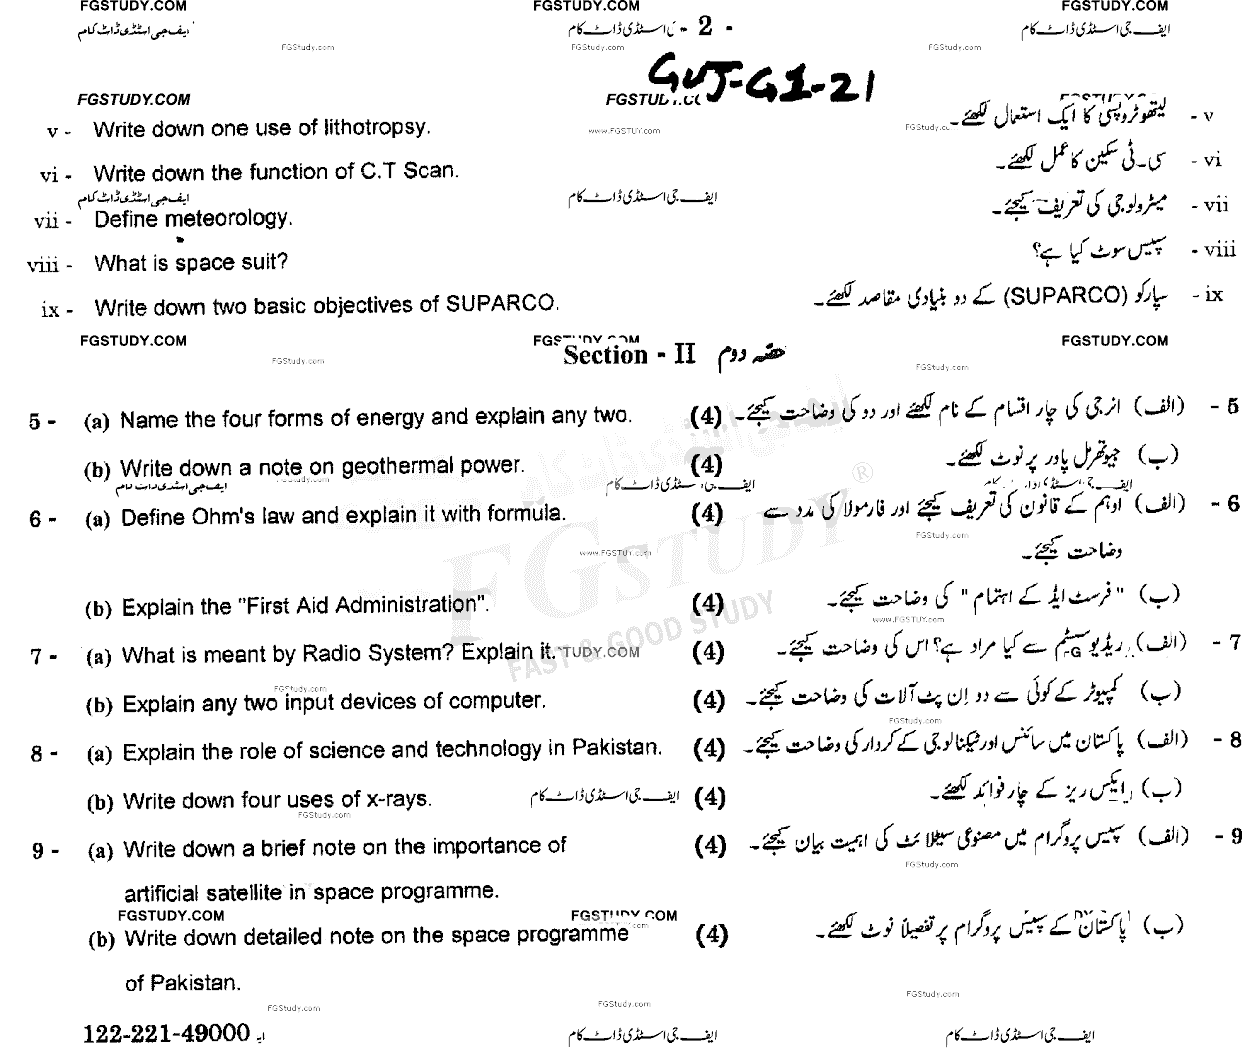 FGSTUDY.COM FGSTUDY.COM FGSTUDY.COM
ایف جی اسٹڈی ڈاٹ کام - 2 - ایف جی اسٹڈی ڈاٹ کام
FGStudy.com FGStudy.com FGStudy.com
GUJ-G1-21
FGSTUDY.COM
v - Write down one use of lithotropsy. www.FGSTUY.com v - لیتھوٹروپسی کا ایک استعمال لکھئے۔
vi - Write down the function of C.T Scan. vi - سی۔ٹی سکین کا عمل لکھئے۔
ایف جی اسٹڈی ڈاٹ کام ایف جی اسٹڈی ڈاٹ کام
vii - Define meteorology. vii - میٹرولوجی کی تعریف کیجئے۔
viii - What is space suit? viii - سپیس سوٹ کیا ہے؟
ix - Write down two basic objectives of SUPARCO. ix - سپارکو (SUPARCO) کے دو بنیادی مقاصد لکھئے۔
FGSTUDY.COM FGSTUDY.COM
Section - II حصّہ دوم
FGStudy.com FGStudy.com
5 - (a) Name the four forms of energy and explain any two. (4) 5 - (الف) انرجی کی چار اقسام کے نام لکھئے اور دو کی وضاحت کیجئے۔
(b) Write down a note on geothermal power. (4) (ب) جیوتھرمل پاور پر نوٹ لکھئے۔
ایف جی اسٹڈی ڈاٹ کام
6 - (a) Define Ohm's law and explain it with formula. (4) 6 - (الف) اوہم کے قانون کی تعریف کیجئے اور فارمولا کی مدد سے
FGStudy.com
www.FGSTUY.com وضاحت کیجئے۔
FGSTUDY ®
FAST & GOOD STUDY
(b) Explain the "First Aid Administration". (4) (ب) "فرسٹ ایڈ کے اہتمام" کی وضاحت کیجئے۔
www.FGSTUY.com
7 - (a) What is meant by Radio System? Explain it. TUDY.COM (4) 7 - (الف) ریڈیو سسٹم سے کیا مراد ہے؟ اس کی وضاحت کیجئے۔
FGStudy.com
(b) Explain any two input devices of computer. (4) (ب) کمپیوٹر کے کوئی سے دو اِن پٹ آلات کی وضاحت کیجئے۔
FGStudy.com
8 - (a) Explain the role of science and technology in Pakistan. (4) 8 - (الف) پاکستان میں سائنس اور ٹیکنالوجی کے کردار کی وضاحت کیجئے۔
(b) Write down four uses of x-rays. ایف جی اسٹڈی ڈاٹ کام (4) (ب) ایکس ریز کے چار فوائد لکھئے۔
FGStudy.com
9 - (a) Write down a brief note on the importance of (4) 9 - (الف) سپیس پروگرام میں مصنوعی سیٹلائٹ کی اہمیت بیان کیجئے۔
FGStudy.com
artificial satellite in space programme.
FGSTUDY.COM FGSTUDY.COM
(b) Write down detailed note on the space programme (4) (ب) پاکستان کے سپیس پروگرام پر تفصیلاً نوٹ لکھئے۔
of Pakistan.
FGStudy.com FGStudy.com FGStudy.com
122-221-49000 ایف جی اسٹڈی ڈاٹ کام ایف جی اسٹڈی ڈاٹ کام